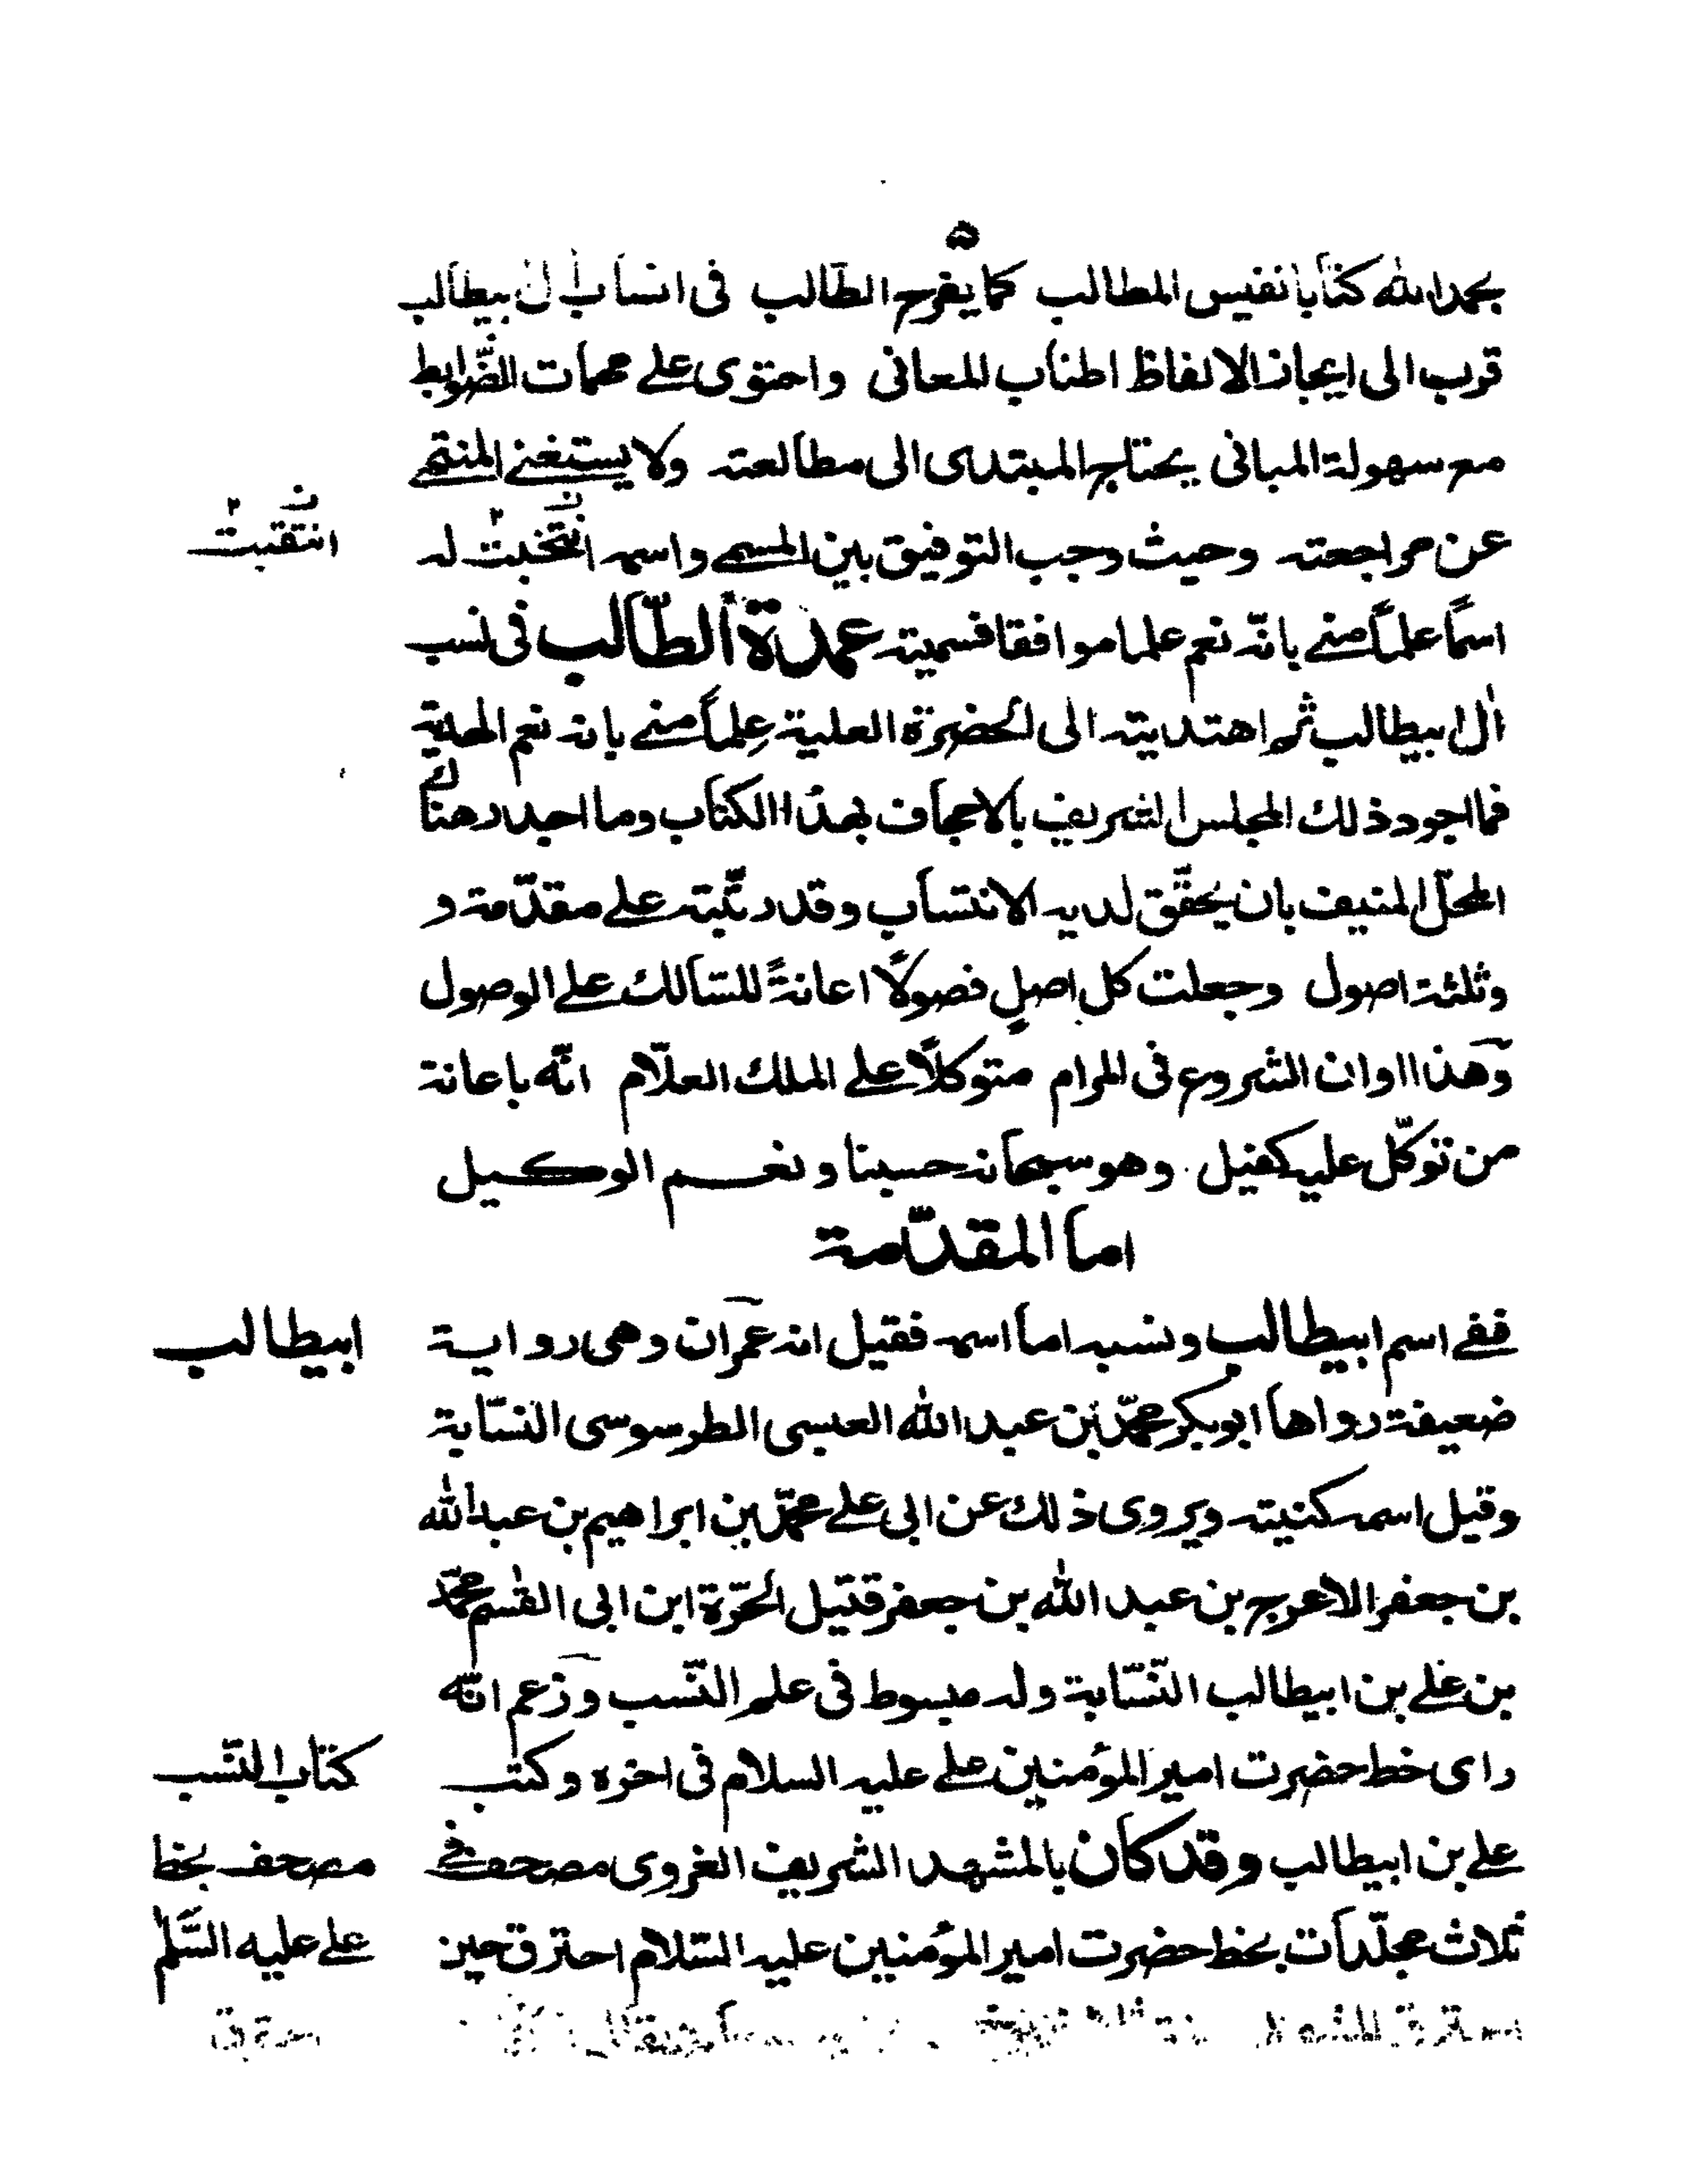 ٥
بحمد الله كتابا نفيس المطالب كما يقرح الطالب فى انساب ال ابيطالب
قرب الى ايجاز الالفاظ اطناب المعانى واحتوى على مهمات الضّوابط
مع سهولة المبانى يحتاج المبتدى الى مطالعته ولا يستغنى المنتهى
عن مراجعته وحيث وجب التوفيق بين المسمى واسمه انتخبت له
انتقيت
اسمًا علمًا منى بانّه نعم علما موافقا فسميته عمدة الطّالب فى نسب
ال ابيطالب ثم اهتديته الى الحضرة العلية عِلمًا منى بانه نعم الهدية
فما اجود ذلك المجلس الشريف بالاحجاف بهذا الكتاب وما اجدر هناك
المحلّ المنيف بان يحقّق لديه الانتساب وقد رتّبته على مقدّمة و
وثلثة اصول وجعلت كل اصلٍ فصولًا اعانةً للسّالك على الوصول
وهذا اوان الشروع فى المرام متوكلًا على الملك العلّام انّه باعانة
من توكّل عليه كفيل وهو سبحانه حسبنا ونعم الوكيل
اما المقدّمة
ففى اسم ابيطالب ونسبه اما اسمه فقيل انه عمران وهى رواية
ابيطالب
ضعيفة رواها ابوبكر محمّد بن عبد الله العبسى الطرسوسى النسّابة
وقيل اسمه كنيته ويروى ذلك عن ابى على محمّد بن ابراهيم بن عبد الله
بن جعفر الاعرج بن عبد الله بن جعفر قتيل الحرّة ابن ابى القسم محمّد
بن على بن ابيطالب النّسّابة وله مبسوط فى علم النّسب وزعم انّه
راى خط حضرت امير المؤمنين على عليه السلام فى اخره وكتب
كتاب النّسب
على بن ابيطالب وقد كان بالمشهد الشريف الغروى مصحف فى
مصحف بخط
ثلاث مجلّدات بخط حضرت امير المؤمنين عليه السّلام احترق حين
على عليه السّلم